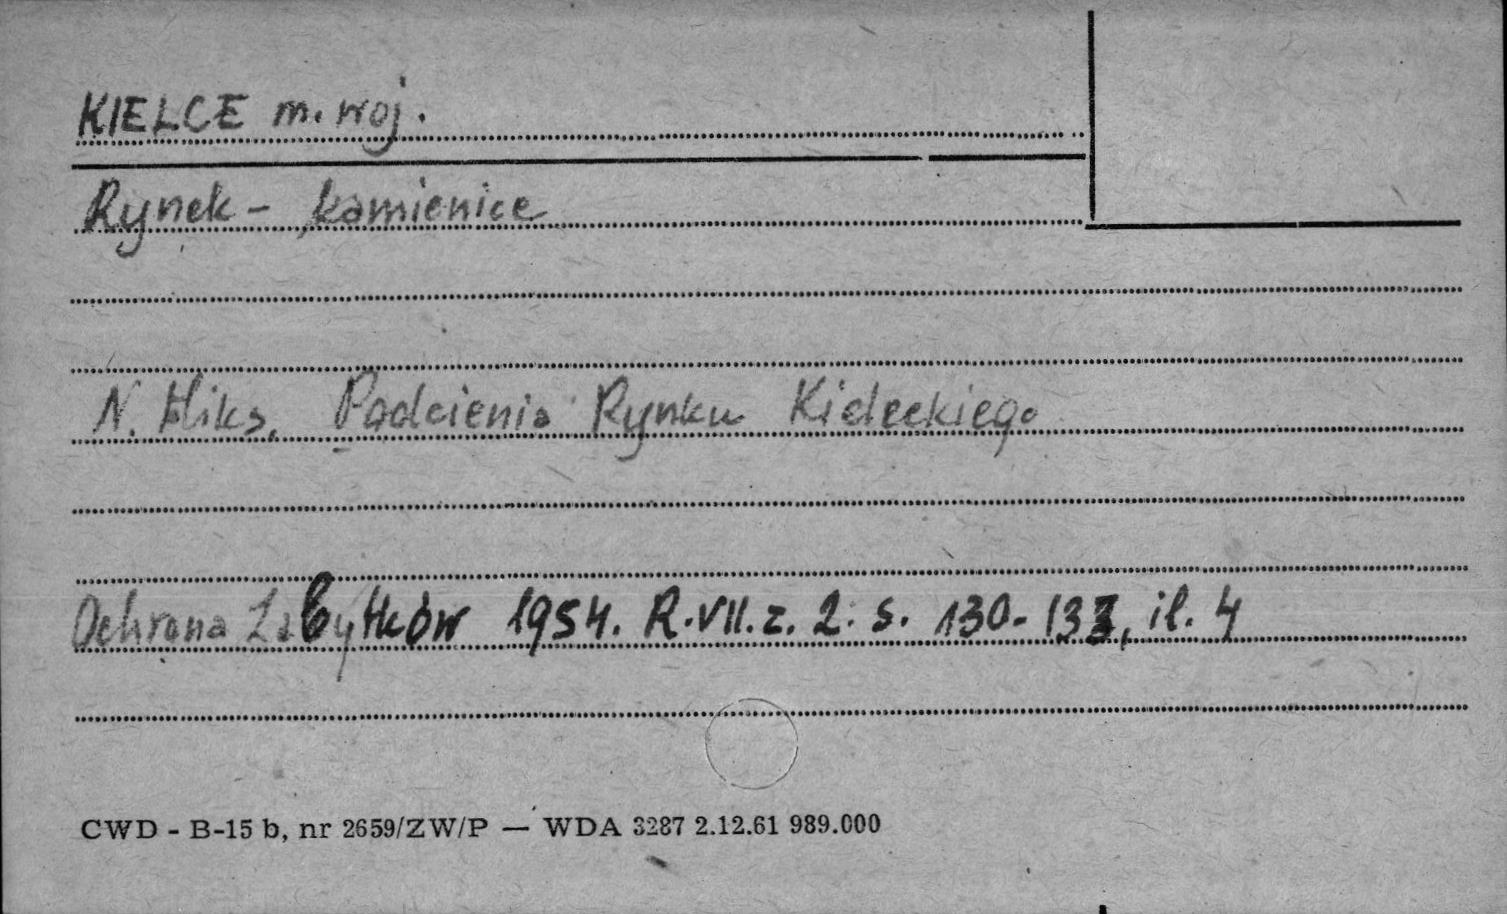 KIELCE m. woj.
Rynek - kamienice
N. Miks. Podcienia Rynku Kieleckiego
Ochrona Zabytków 1954. R. VII. z. 2. s. 130-133, il. 4
CWD - B-15 b, nr 2659/ZW/P — WDA 3287 2.12.61 989.000